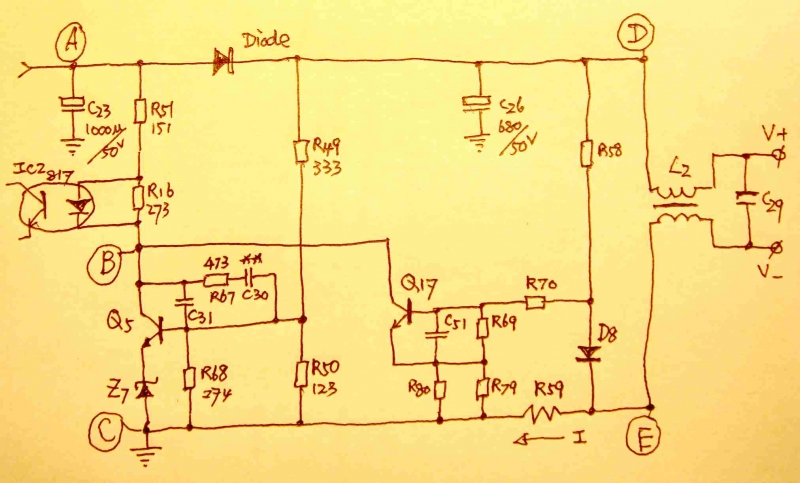 A
Diode
D
C23
1000µ
/50V
R51
151
R49
333
C26
680
/50V
R58
V+
IC2 817
R16
273
L2
C29
V_
B
473
R67
C30
C31
Q5
Q17
R70
C51
R69
D8
R68
274
R50
123
Z7
R80
R79
R59
C
I
E